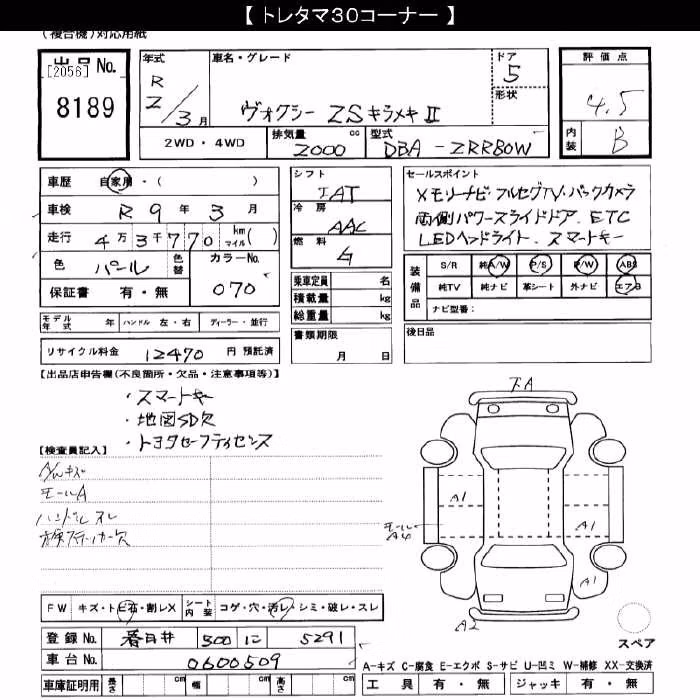 【 トレタマ30コーナー 】
(複合機)対応用紙
出品 No.
[2056]
8189
年式
R 2/3月
車名・グレード
ヴォクシー ZSキラメキⅡ
ドア
5
形状
評価点
4.5
内装
B
2WD・4WD
排気量 cc
2000
型式
DBA-ZRR80W
車歴 自家用・( )
車検 R 9年 3月
走行 4万3千770 km マイル( )
色 パール 色替
カラーNo.
070
保証書 有・無
シフト
IAT
冷房
AAC
燃料
G
乗車定員 名
積載量 kg
総重量 kg
書類期限
月 日
セールスポイント
メモリーナビ・フルセグTV・バックカメラ
両側パワースライドドア、ETC
LEDヘッドライト、スマートキー
装備品
S/R 純A/W P/S P/W ABS
純TV 純ナビ 革シート 外ナビ エアB
ナビ型番:
後日品
モデル年式 年 ハンドル 左・右 ディーラー・並行
リサイクル料金 12470 円 預託済
【出品店申告欄(不良箇所・欠品・注意事項等)】
・スマートキー
・地図SD欠
・トヨタセーフティセンス
【検査員記入】
モールA
ハンドルスレ
FW キズ・トビ石・割レX
シート内装 コゲ・穴・汚レ・シミ・破レ・スレ
登録No. 春日井 500 に 5291
車台No. 0600509
車庫証明用 長さ cm 幅 cm 高さ cm
下A
A1
モール
A1
A1
A2
スペア
A-キズ C-腐食 E-エクボ S-サビ U-凹ミ W-補修 XX-交換済
工具 有・無 ジャッキ 有・無